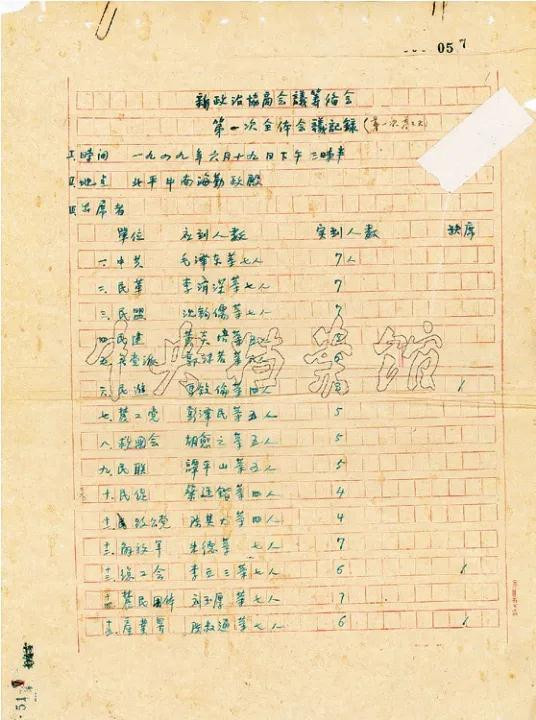 057
新政治協商会議筹备会
第一次全体会議記録(第一次
I.時間 一九四九年六月十九日下午三時半
II.地点 北平中南海勤政殿
III.出席者
單位 应到人数 实到人数 缺席
一.中共 毛澤东等七人 7人
二.民革 李濟深等七人 7
三.民盟 沈鈞儒等七人 7
四.民建 黄炎培等
五.無党派 郭沫若等
六.民進 馬叙倫等四人 3 1
七.農工党 彭澤民等五人 5
八.救國会 胡愈之等五人 5
九.民联 譚平山等五人 5
十.民促 蔡廷鍇等四人 4
十一.致公党 陳其尤等四人 4
十二.解放军 朱德等 七人 7
十三.總工会 李立三等七人 6 1
農民团体 刘玉厚等七人 7
十五.產業界 陳叔通等七人 6 1
中央档案馆
51